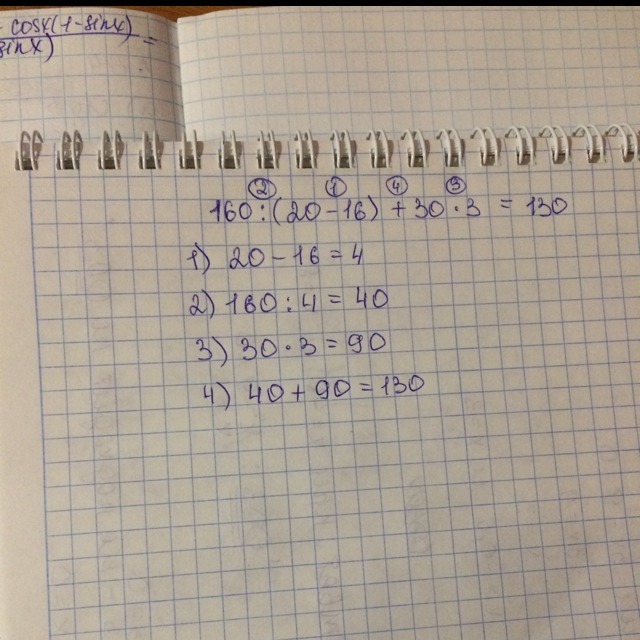 - cosx(1-sinx)
sinx) =
② ① ④ ③
160:(20-16)+30·3 = 130
1) 20-16=4
2) 160:4=40
3) 30·3=90
4) 40+90=130